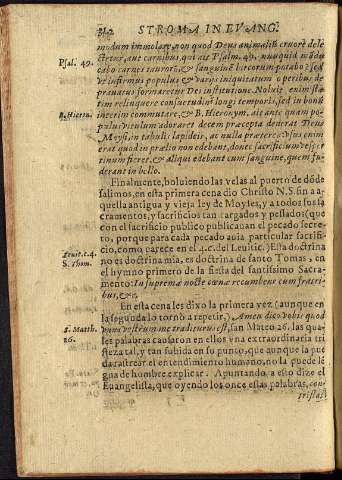 312 STROMA IN EVANG.
modum immolare, non quod Deus animaliũ cruorē dele
ctetur, aut carnibus, qui ait Psalm. 49. nunquid mādu
Psal. 49.
cabo carnes taurorũ, & sanguinē hircorum potabo? sed
ve infirmus populus & varijs iniquitatum operibus de
pravatus formaretur Dei institutione. Nobuis enim sta
tim relinquere consuetudinē longi temporis, sed in bonũ
interim commutare, & B. Hieronym. ait ante quam po
B. Hiero.
pulus vitulum adoraret decem præcepta dederat Deus
Moysi, in tabulis lapideis, ac nulla præterea: usus enim
erat quod in prælio non edebant, donec sacrificium vesper
tinum fieret, & aliqui edebant cum sanguine, quem fu
derant in bello.
Finalmente, boluiendo las velas al puerto de dōde
salimos, en esta primera cena dio Christo N.S. fin a a
quella antigua y vieja ley de Moyses, y a todos sus sa
cramentos, y sacrificios tan cargados y pesados (que
con el sacrificio publico publicauan el pecado secre-
to, porque para cada pecado auia particular sacrifi-
cio, como parece en el 4.c. del Leuitic.) Esta doctrina
Leuit.c.4.
no es doctrina mia, es doctrina de santo Tomas, en
S. Thom.
el hymno primero de la fiesta del santissimo Sacra-
mento: In supremæ nocte cœnæ recumbens cum fratri-
bus, &c.
En esta cena les dixo la primera vez (aunque en
la segunda lo tornò a repetir) Amen dico vobis quod
unus vestrum me traditurus est, san Mateo 26. las qua-
S. Matth.
26.
les palabras causaron en ellos vna extraordinaria tri
steza tal, y tan subida en su punto, que aunque la pue
da rastrear el entendimiento humano, no la puede lē
gua de hombre explicar. Apuntando a esto dize el
Euangelista, que oyendo los once estas palabras, con-
tristati